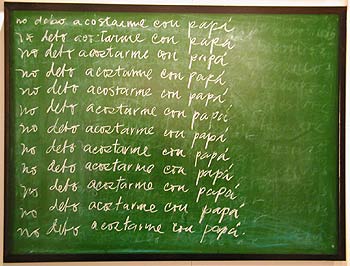 no debo acostarme con papá
no debo acostarme con papá
no debo acostarme con papá
no debo acostarme con papá
no debo acostarme con papá
no debo acostarme con papá
no debo acostarme con papá
no debo acostarme con papá
no debo acostarme con papá
no debo acostarme con papá
no debo acostarme con papá
no debo acostarme con papá.